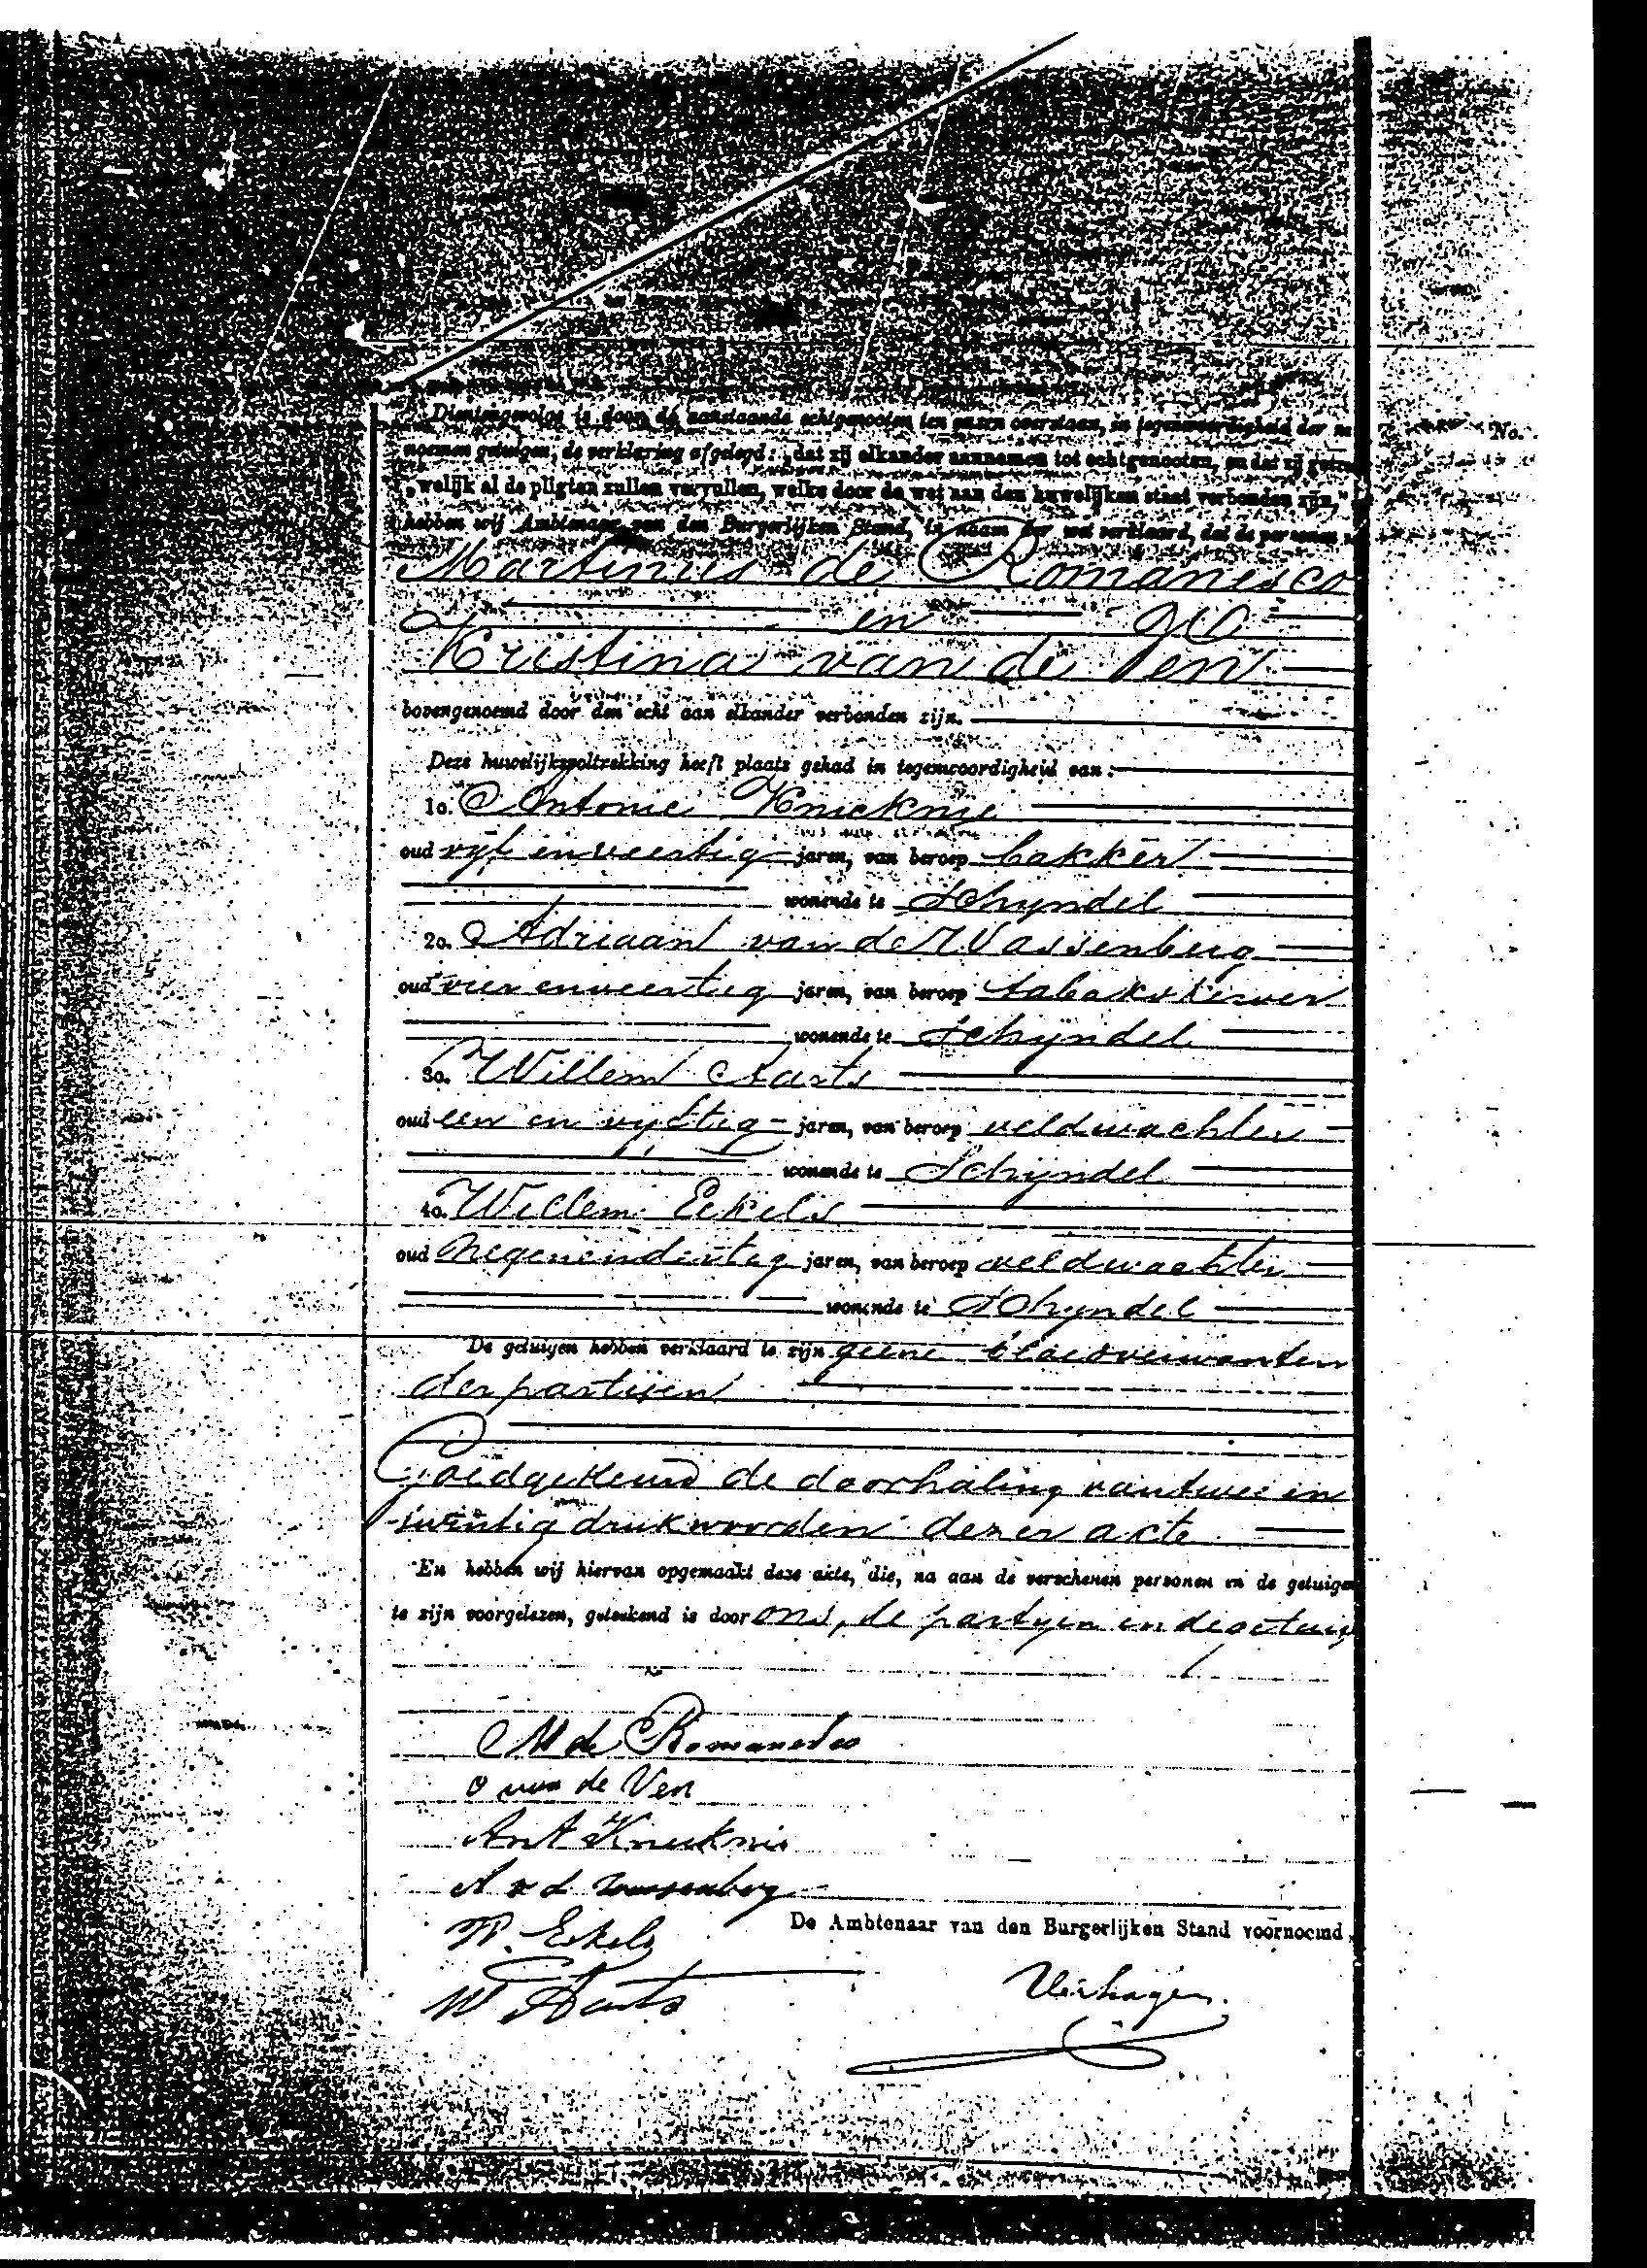 Dientengevolge is door de aanstaande echtgenooten ten onzen overstaan, in tegenwoordigheid der na
noemen getuigen, de verklaring afgelegd: „dat zij elkander aannemen tot echtgenooten, en dat zij getrou
„welijk al de pligten zullen vervullen, welke door de wet aan den huwelijken staat verbonden zijn,"
hebben wij Ambtenaar van den Burgerlijken Stand, in naam der wet verklaard, dat de personen
Martinus de Romanesco
en
Kristina van de Ven
bovengenoemd door den echt aan elkander verbonden zijn.
Deze huwelijksvoltrekking heeft plaats gehad in tegenwoordigheid van:
1o. Antonie Knieknie
oud vijf en veertig jaren, van beroep bakker
wonende te Schijndel
2o. Adriaan van de Wassenberg
oud vier en veertig jaren, van beroep tabakskerver
wonende te Schijndel
3o. Willem Aarts
oud een en vijftig jaren, van beroep veldwachter
wonende te Schijndel
4o. Willem Eekels
oud negenendertig jaren, van beroep veldwachter
wonende te Schijndel
De getuigen hebben verklaard te zijn geene bloedverwanten
der partijen
Goedgekeurd de doorhaling van twee en
twintig drukwoorden dezer akte
En hebben wij hiervan opgemaakt deze akte, die, na aan de verschenen personen en de getuigen
te zijn voorgelezen, geteekend is door ons, de partijen en de getuig
M de Romanesco
van de Ven
Ant Knieknie
A v d Wassenberg
De Ambtenaar van den Burgerlijken Stand voornoemd,
W. Eekels
W Aarts
Verhagen.
No.